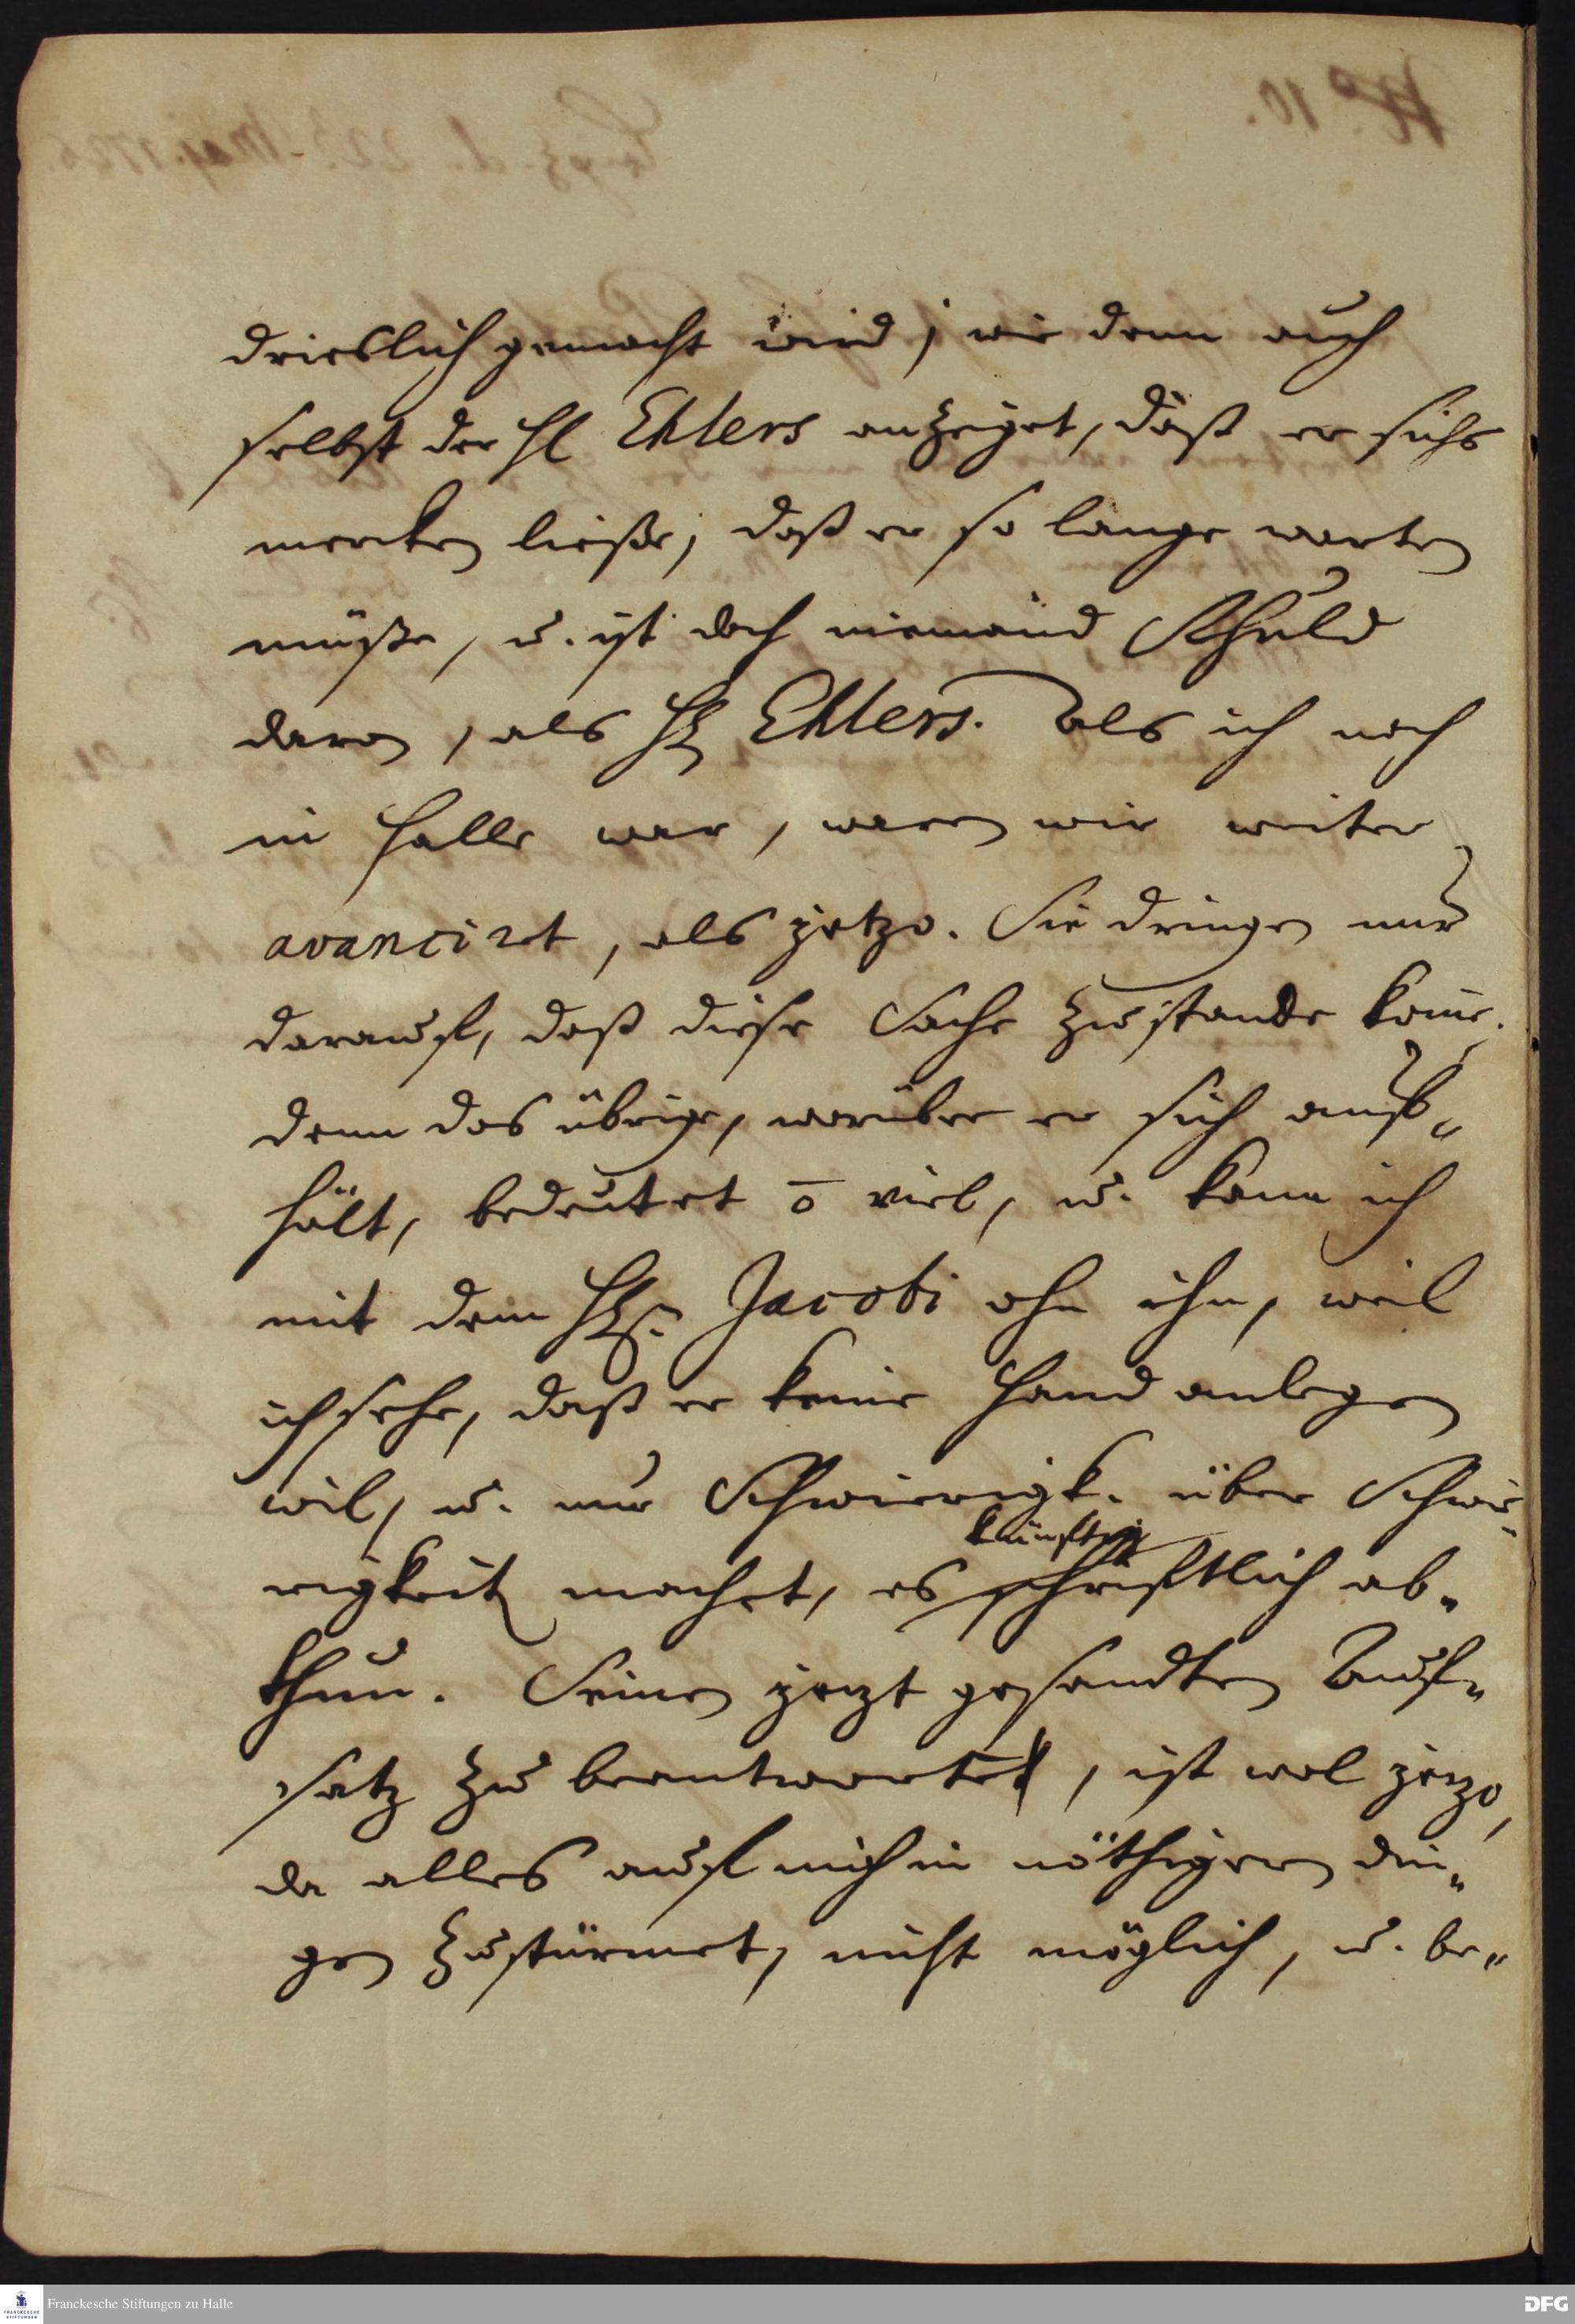 drieslich gemacht wird, wie denn auch
selbst der H. Ehlers anzeiget, daß er sichs
mercken ließe, daß er so lange warten
müße, u. ist doch niemand Schuld
daran, als H. Ehlers. Als ich noch
in Halle war, waren wir weiter
avanciret, als jetzo. Sie dringen nur
darauf, daß diese Sache zustande kom̅e.
denn das übrige, worüber er sich auff-
hält, bedeutet o̅ viel, u. kann ich
mit dem H. Jacobi ohn ihn, weil
ich sehe, daß er keine Hand anlegen
wil, u. nur Schwierigk. über Schwie-
künfftig
rigkeit machet, es schrifftlich ab-
thun. Seinen jetzt gesandten Auf-
satz zu beantworten, ist wol jetzo,
da alles auf mich in nöthigern din-
gen zustürmet, nicht möglich, u. be-
Franckesche Stiftungen zu Halle
DFG